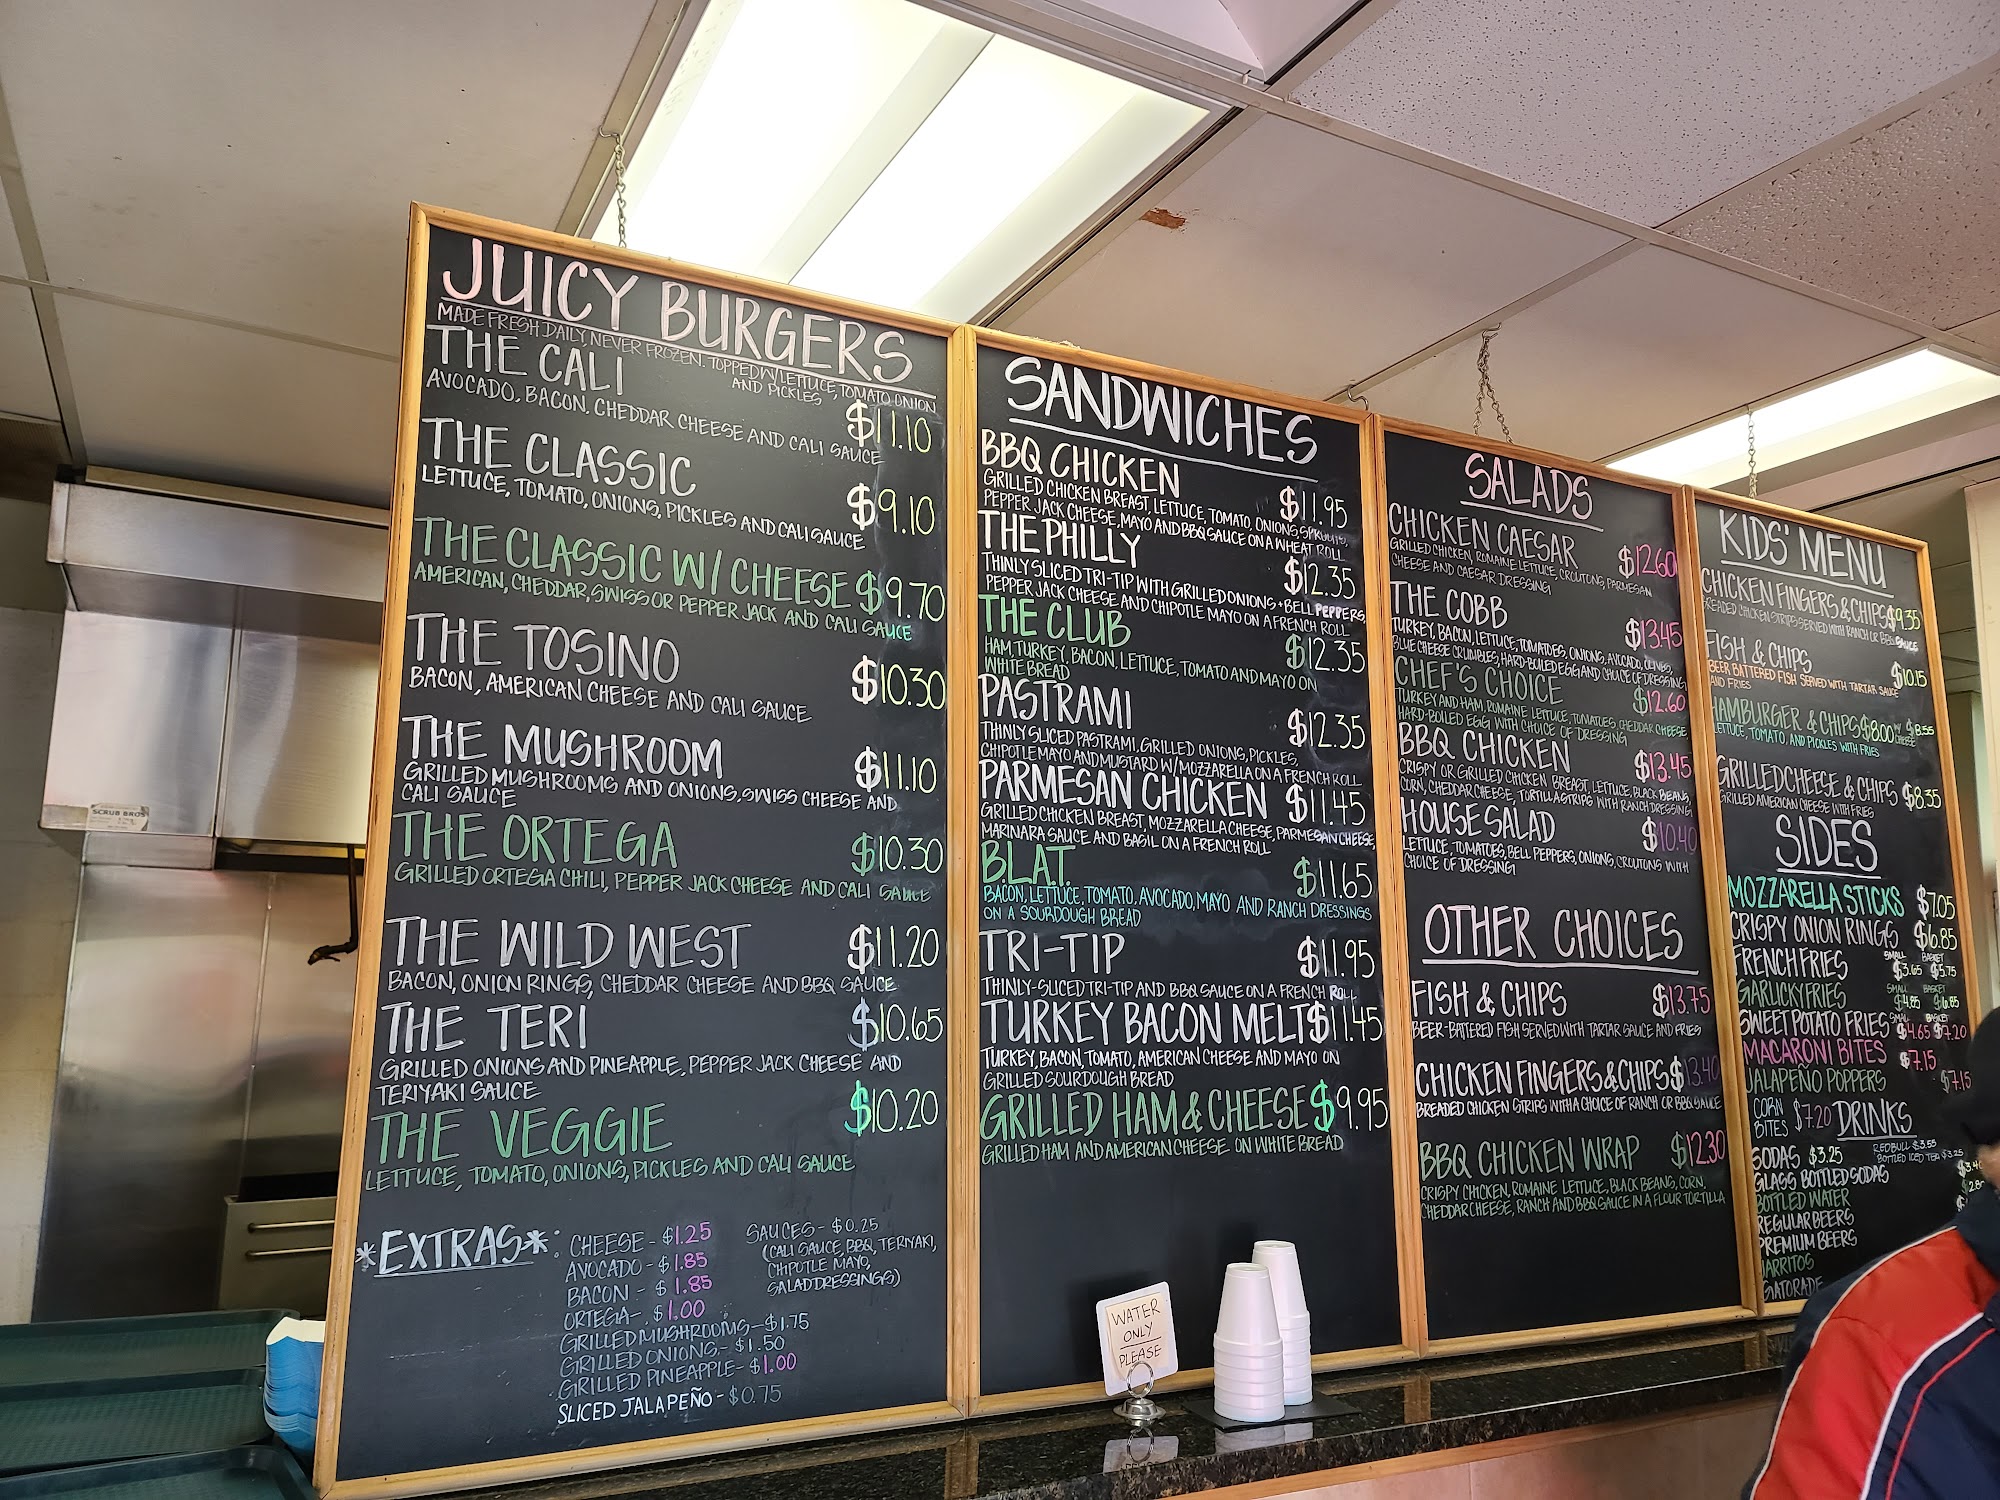 JUICY BURGERS
MADE FRESH DAILY, NEVER FROZEN. TOPPED W/LETTUCE, TOMATO, ONION
AND PICKLES
THE CALI
$11.10
AVOCADO, BACON, CHEDDAR CHEESE AND CALI SAUCE
THE CLASSIC
$9.10
LETTUCE, TOMATO, ONIONS, PICKLES AND CALI SAUCE
THE CLASSIC W/ CHEESE $9.70
AMERICAN, CHEDDAR, SWISS OR PEPPER JACK AND CALI SAUCE
THE TOSINO
$10.30
BACON, AMERICAN CHEESE AND CALI SAUCE
THE MUSHROOM
$11.10
GRILLED MUSHROOMS AND ONIONS, SWISS CHEESE AND
CALI SAUCE
THE ORTEGA
$10.30
GRILLED ORTEGA CHILI, PEPPER JACK CHEESE AND CALI SAUCE
THE WILD WEST
$11.20
BACON, ONION RINGS, CHEDDAR CHEESE AND BBQ SAUCE
THE TERI
$10.65
GRILLED ONIONS AND PINEAPPLE, PEPPER JACK CHEESE AND
TERIYAKI SAUCE
THE VEGGIE
$10.20
LETTUCE, TOMATO, ONIONS, PICKLES AND CALI SAUCE
*EXTRAS*:
CHEESE - $1.25
AVOCADO - $1.85
BACON - $1.85
ORTEGA - $1.00
GRILLED MUSHROOMS - $1.75
GRILLED ONIONS - $1.50
GRILLED PINEAPPLE - $1.00
SLICED JALAPEÑO - $0.75
SAUCES - $0.25
(CALI SAUCE, BBQ, TERIYAKI,
CHIPOTLE MAYO,
SALAD DRESSINGS)
SANDWICHES
BBQ CHICKEN
$11.95
GRILLED CHICKEN BREAST, LETTUCE, TOMATO, ONIONS, SPROUTS,
PEPPER JACK CHEESE, MAYO AND BBQ SAUCE ON A WHEAT ROLL
THE PHILLY
$12.35
THINLY SLICED TRI-TIP WITH GRILLED ONIONS + BELL PEPPERS,
PEPPER JACK CHEESE AND CHIPOTLE MAYO ON A FRENCH ROLL
THE CLUB
$12.35
HAM, TURKEY, BACON, LETTUCE, TOMATO AND MAYO ON
WHITE BREAD
PASTRAMI
$12.35
THINLY SLICED PASTRAMI, GRILLED ONIONS, PICKLES,
CHIPOTLE MAYO AND MUSTARD W/MOZZARELLA ON A FRENCH ROLL
PARMESAN CHICKEN $11.45
GRILLED CHICKEN BREAST, MOZZARELLA CHEESE, PARMESAN CHEESE,
MARINARA SAUCE AND BASIL ON A FRENCH ROLL
B.L.A.T.
$11.65
BACON, LETTUCE, TOMATO, AVOCADO, MAYO AND RANCH DRESSINGS
ON A SOURDOUGH BREAD
TRI-TIP
$11.95
THINLY-SLICED TRI-TIP AND BBQ SAUCE ON A FRENCH ROLL
TURKEY BACON MELT $11.45
TURKEY, BACON, TOMATO, AMERICAN CHEESE AND MAYO ON
GRILLED SOURDOUGH BREAD
GRILLED HAM & CHEESE $9.95
GRILLED HAM AND AMERICAN CHEESE ON WHITE BREAD
SALADS
CHICKEN CAESAR
$12.60
GRILLED CHICKEN, ROMAINE LETTUCE, CROUTONS, PARMESAN
CHEESE AND CAESAR DRESSING
THE COBB
$13.45
TURKEY, BACON, LETTUCE, TOMATOES, ONIONS, AVOCADO, OLIVES,
BLUE CHEESE CRUMBLES, HARD-BOILED EGG AND CHOICE OF DRESSING
CHEF'S CHOICE
$12.60
TURKEY AND HAM, ROMAINE LETTUCE, TOMATOES, CHEDDAR CHEESE
HARD-BOILED EGG WITH CHOICE OF DRESSING
BBQ CHICKEN
$13.45
CRISPY OR GRILLED CHICKEN BREAST, LETTUCE, BLACK BEANS,
CORN, CHEDDAR CHEESE, TORTILLA STRIPS WITH RANCH DRESSING
HOUSE SALAD
$10.40
LETTUCE, TOMATOES, BELL PEPPERS, ONIONS, CROUTONS WITH
CHOICE OF DRESSING
OTHER CHOICES
FISH & CHIPS
$13.75
BEER-BATTERED FISH SERVED WITH TARTAR SAUCE AND FRIES
CHICKEN FINGERS & CHIPS $13.40
BREADED CHICKEN STRIPS WITH A CHOICE OF RANCH OR BBQ SAUCE
BBQ CHICKEN WRAP
$12.30
CRISPY CHICKEN, ROMAINE LETTUCE, BLACK BEANS, CORN,
CHEDDAR CHEESE, RANCH AND BBQ SAUCE IN A FLOUR TORTILLA
KIDS' MENU
CHICKEN FINGERS & CHIPS $9.35
BREADED CHICKEN STRIPS SERVED WITH RANCH OR BBQ SAUCE
FISH & CHIPS
$10.15
BEER BATTERED FISH SERVED WITH TARTAR SAUCE
AND FRIES
HAMBURGER & CHIPS $8.00 W/ CHEESE $8.55
LETTUCE, TOMATO, AND PICKLES WITH FRIES
GRILLED CHEESE & CHIPS $8.35
GRILLED AMERICAN CHEESE WITH FRIES
SIDES
MOZZARELLA STICKS $7.05
CRISPY ONION RINGS $6.85
FRENCH FRIES SMALL $3.65 BASKET $5.75
GARLICKY FRIES SMALL $4.85 BASKET $6.85
SWEET POTATO FRIES SMALL $4.65 BASKET $7.20
MACARONI BITES $7.15
JALAPEÑO POPPERS $7.15
CORN
BITES $7.20
DRINKS
REDBULL $3.55
BOTTLED ICED TEA $3.25
SODAS $3.25
GLASS BOTTLED SODAS
BOTTLED WATER
REGULAR BEERS
PREMIUM BEERS
JARRITOS
GATORADE
WATER
ONLY
PLEASE
SCRUB BROS